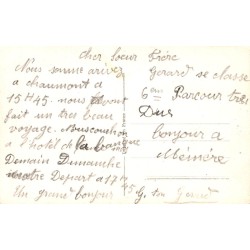 cher Soeur Frère
Nous somme arrivez
a chaumont a
15H45. nous avont
fait un tres beau
voyage. Nous couchon
a l'hotel de la
Demain Dimanche
notre Depart a 17H
Un grand bonjour
Gerard se classe
6em Parcour très
Dur
bonjour a
Mémére
G.